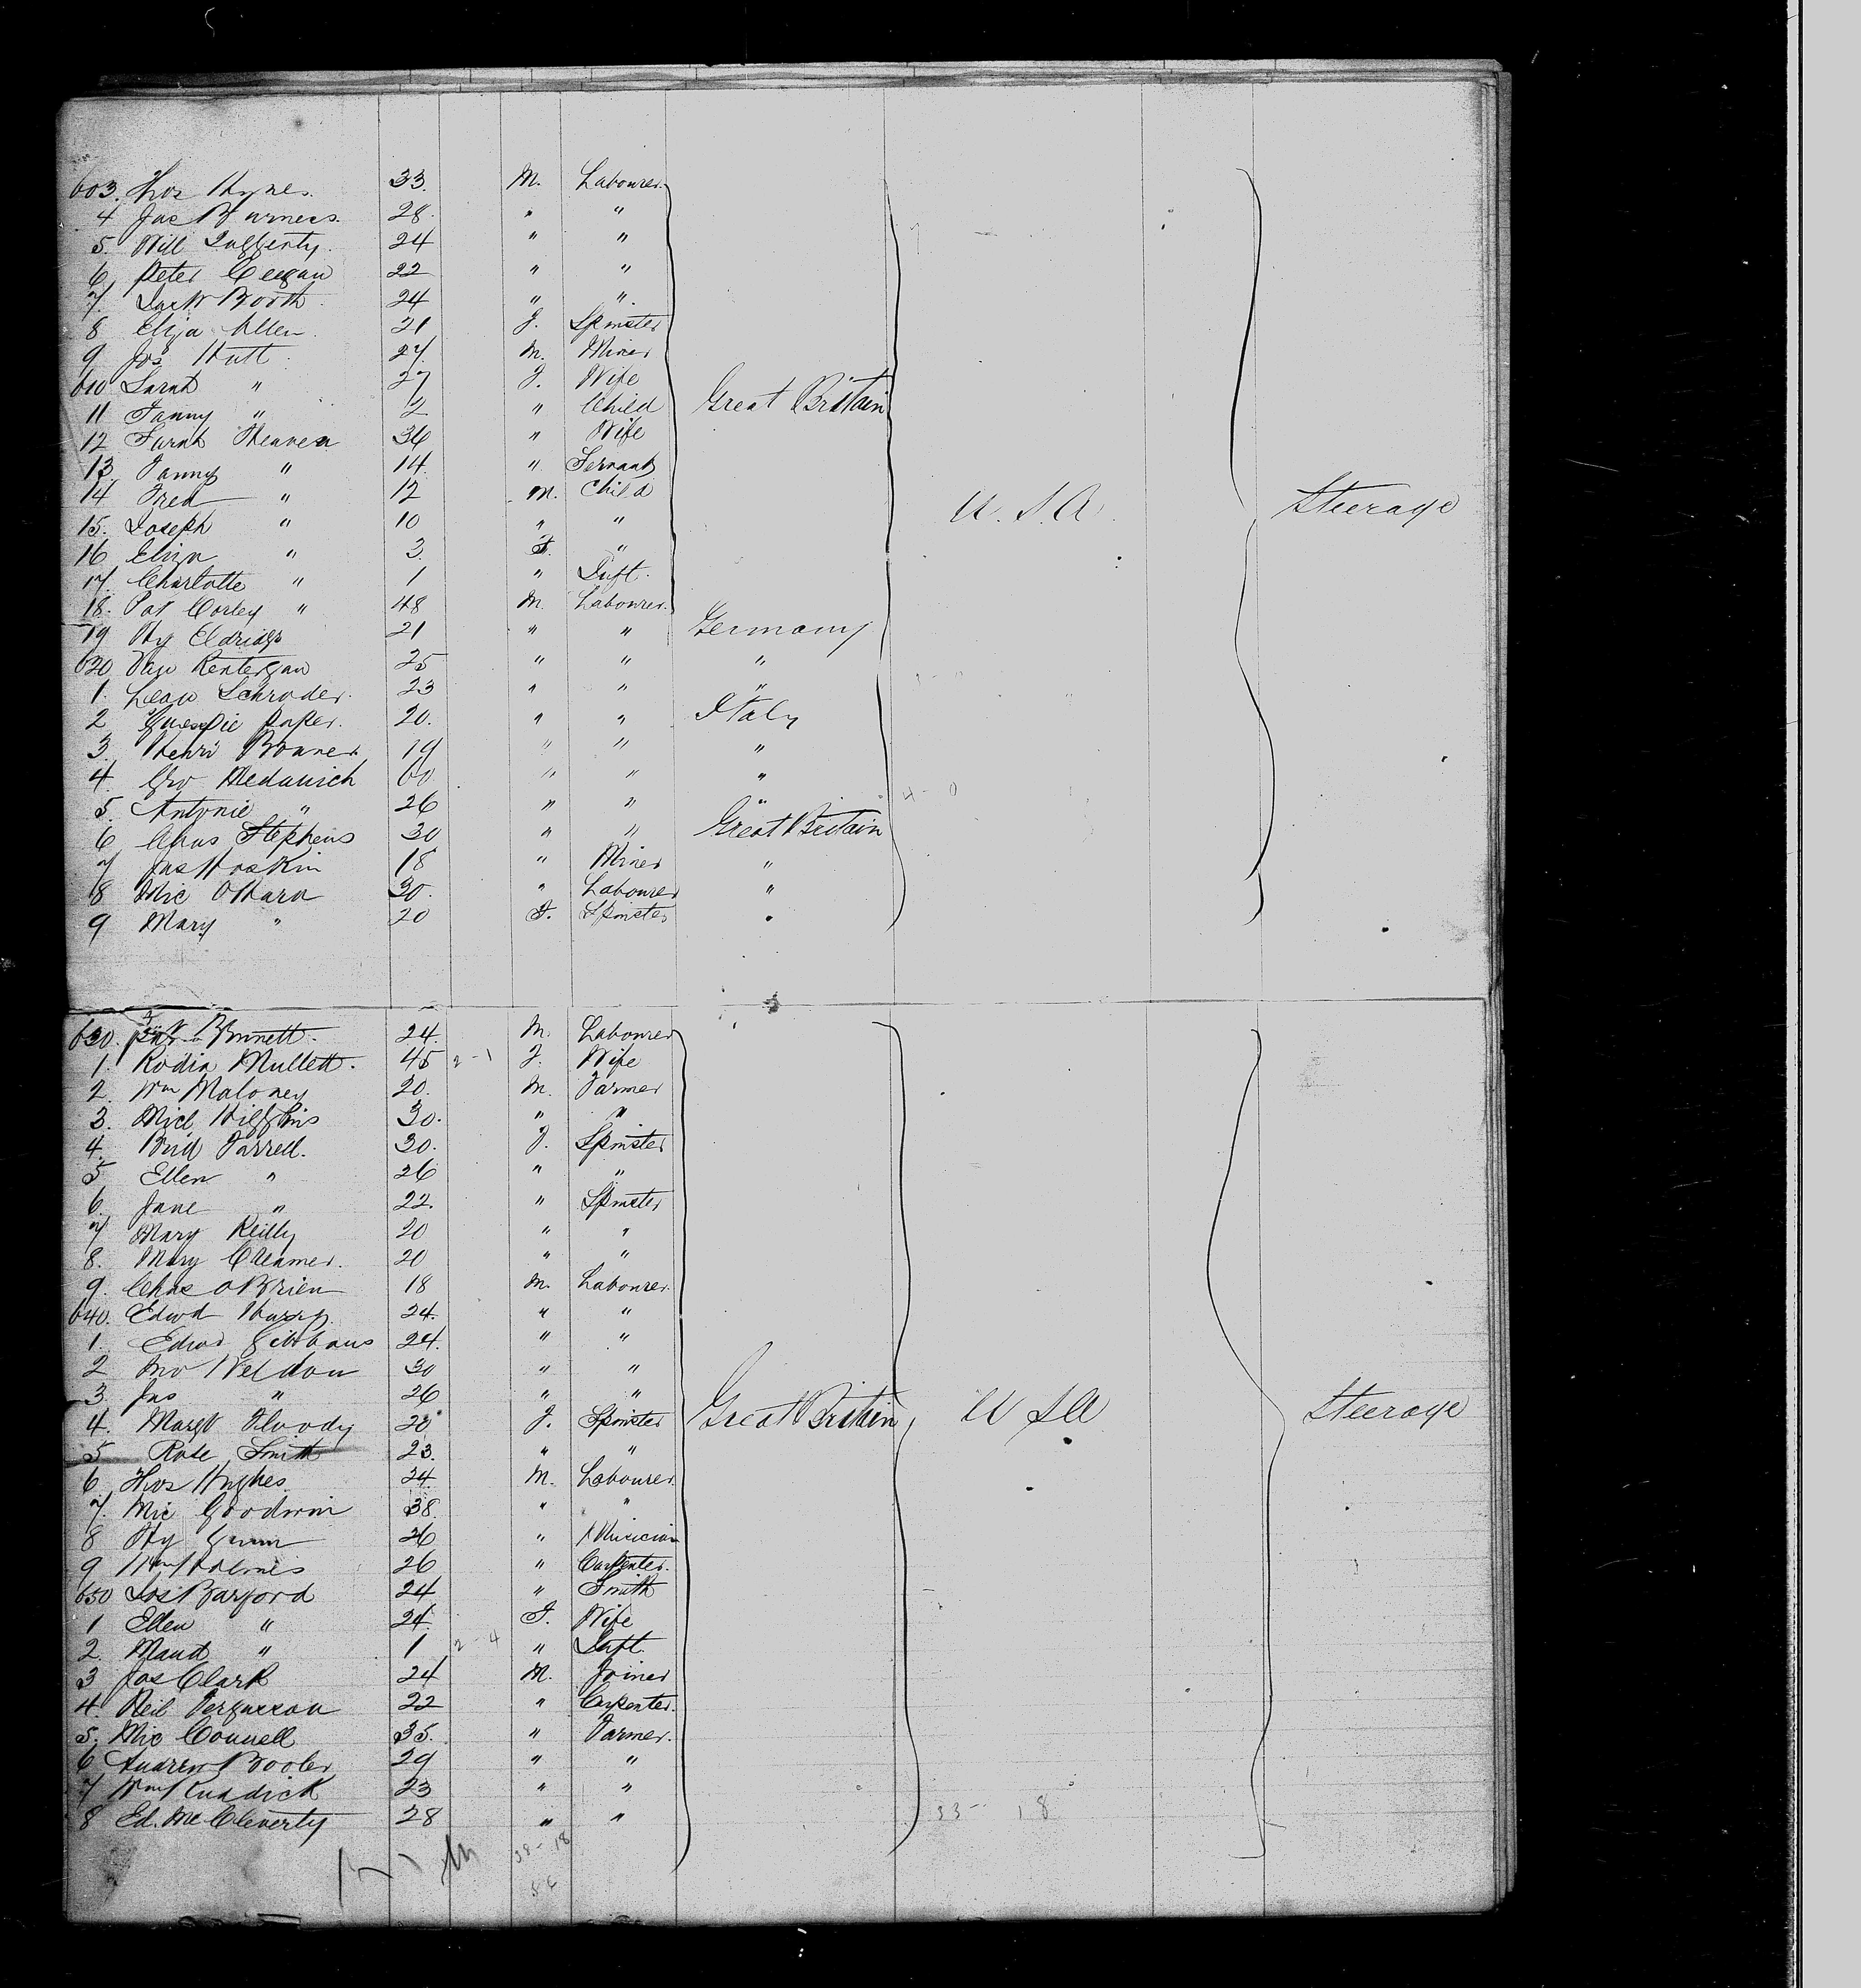 603. Thos Hynes. 33. M. Labourer.
4 Jas Burness. 28. " "
5. Will Lafferty. 24 " "
6 Peter Keegan 22 " "
7. Jack Booth. 24 " ".
8 Eliza Allen. 21 F. Spinster
9 Jos Hutt. 27. M. Miner
610 Sarah " 27 F. Wife
11 Fanny " 2 " Child Great Britain
12 Sarah Heaven 36 " Wife
13. Fanny " 14. " Servant
14 Fred " 12 M. Child
15. Joseph " 10 " " U.S.A. Steerage
16 Eliza " 3 F. "
17. Charlotte " 1 " Inft.
18. Pat Corley " 48 M. Labourer.
19 Hy Eldridge 21 " " Germany
620 25 " " "
1. Leau Schroder. 23 " " "
2 20. " " Italy
3. Henri Bonner 19 " " "
4. Gio Medanich 60 " " "
5. Antonie " 26 " " "
6 Chas Stephens 30 " " Great Britain
7 Jas Hoskin 18 " Miner "
8 Mic OHara 30. " Labourer "
9 Mary " 20 F. Spinster "
630. Bennett. 24. M. Labourer
1. Rodia Mullett. 45 2-1 F. Wife
2. Wm Maloney 20. M. Farmer
3. Micl Higgins 30. " "
4. Brid Farrell. 30. F. Spinster
5 Ellen " 26 " "
6. Jane " 22. " Spinster
7 Mary Reilly 20 " "
8. Mary Creamer. 20 " "
9. Chas OBrien 18 M. Labourer.
640. Edwd Harry. 24. " "
1. Edwd Gibbons 24. " "
2 Jno Weldon 30 " "
3. Jas " 26 " "
4. Margt Floody 20 F. Spinster Great Britain, U S A Steerage
5 Rose Smith 23. " "
6. Thos Hughes. 24. M. Labourer.
7. Mic Goodwin 38. " "
8 Hy Gunn 26 " Musician
9 Wm Holmes 26 " Carpenter.
650 Jos Barford 24 " Smith
1 Ellen " 24. F. Wife
2. Maud " 1 2-4 " Inft.
3 Jos Clark 24 M. Joiner
4. Neil Fergusson 22 " Carpenter.
5. Mic Connell 35. " Farmer.
6 Andrew Booler 29 " "
7 Wm Ruddick 23 " "
8 Ed. McCleverty 28 " "
33 - 18
38-18